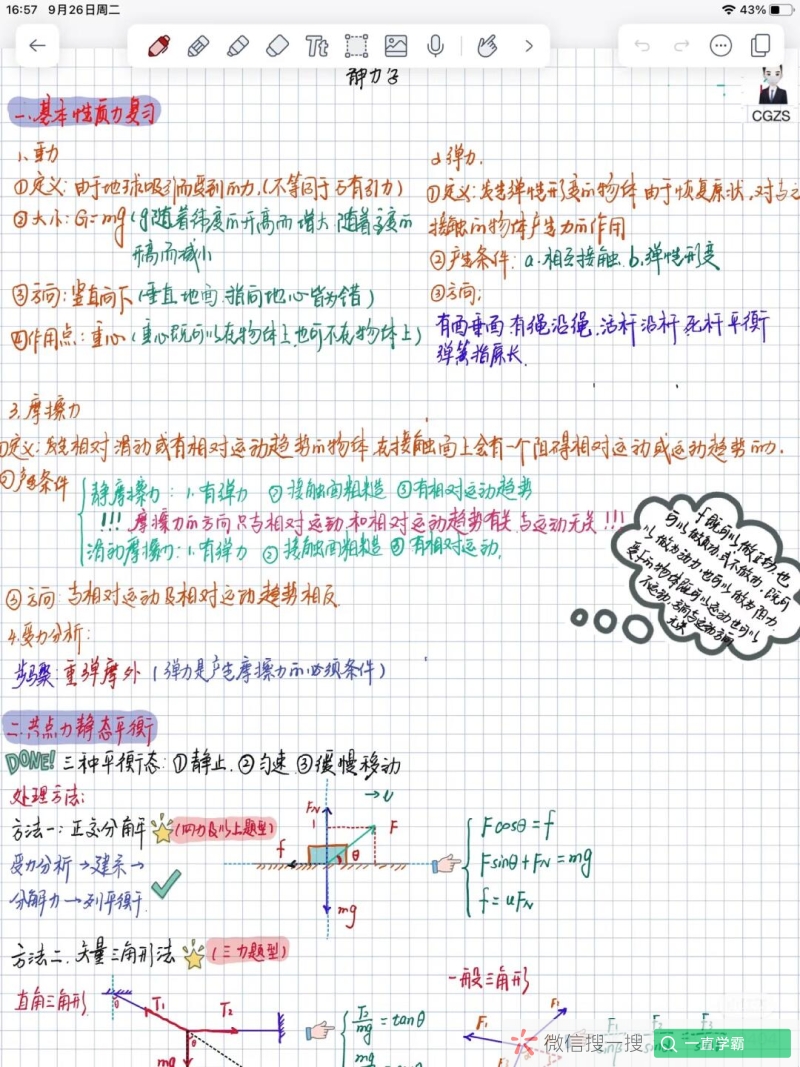 16:57 9月26日周二
43%
Tt
静力学
CGZS
一.基本性质力复习
1、重力
①定义：由于地球吸引而受到的力.(不等同于万有引力)
②大小：G=mg(g随着纬度的升高而增大.随着高度的
升高而减小
③方向：竖直向下(垂直地面.指向地心皆为错)
④作用点：重心(重心既可以在物体上也可不在物体上)
2.弹力.
①定义：发生弹性形变的物体由于恢复原状,对与之
接触的物体产生力的作用
②产生条件：a.相互接触.b.弹性形变
③方向:
有面垂面有绳沿绳.活杆沿杆.死杆平衡
弹簧指原长.
3.摩擦力
①定义：发生相对滑动或有相对运动趋势的物体在接触面上会有一个阻碍相对运动或运动趋势的力.
②产生条件
静摩擦力：1.有弹力 ②接触面粗糙 ③有相对运动趋势
!!! 摩擦力的方向只与相对运动和相对运动趋势有关.与运动无关!!!
滑动摩擦力：1.有弹力 ②接触面粗糙 ③有相对运动.
③方向:与相对运动及相对运动趋势相反
f既可以做正功,也
可以做负功或不做功,既可
以做为动力,也可以做为阻力
受f的物体既可以运动也可以
不运动.方向与运动方向
无关
4.受力分析:
步骤:重弹摩外(弹力是产生摩擦力的必须条件)
二.共点力静态平衡
DONE! 三种平衡态:①静止.②匀速 ③缓慢移动
处理方法:
方法一:正交分解 (四力及以上题型)
受力分析→建系→
分解力→列平衡
FN
v
F
f
θ
mg
Fcosθ=f
Fsinθ+FN=mg
f=uFN
方法二.矢量三角形法 (三力题型)
直角三角形
θ
T1
T2
θ
mg
T2/mg=tanθ
mg
一般三角形
F1
F2
微信搜一搜
一直学霸